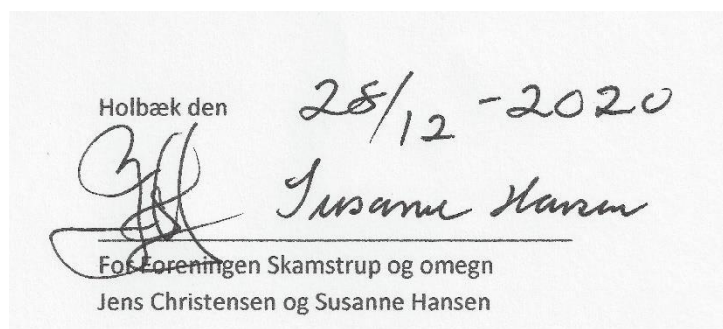 Holbæk den 28/12 - 2020
Susanne Hansen
For Foreningen Skamstrup og omegn
Jens Christensen og Susanne Hansen